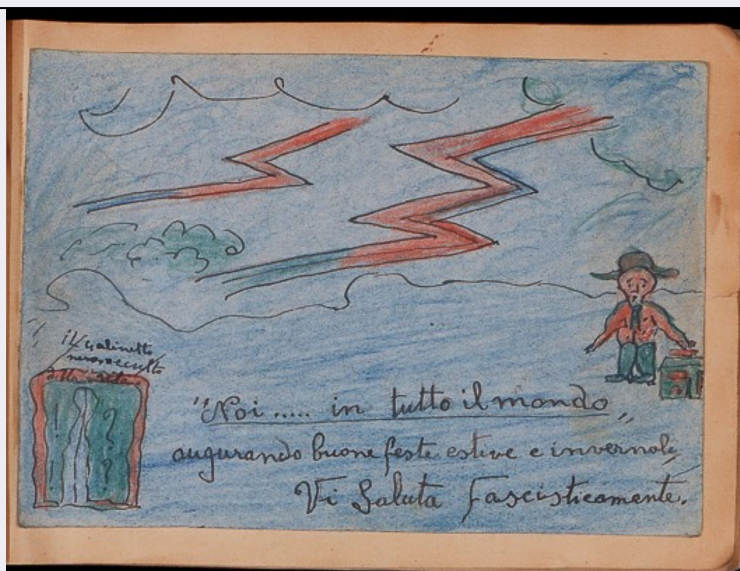 il gabinetto
nero, occulto
"Noi ..... in tutto il mondo"
augurando buone feste estive e invernali,
Vi Saluta Fascisticamente.
! ? ? ?